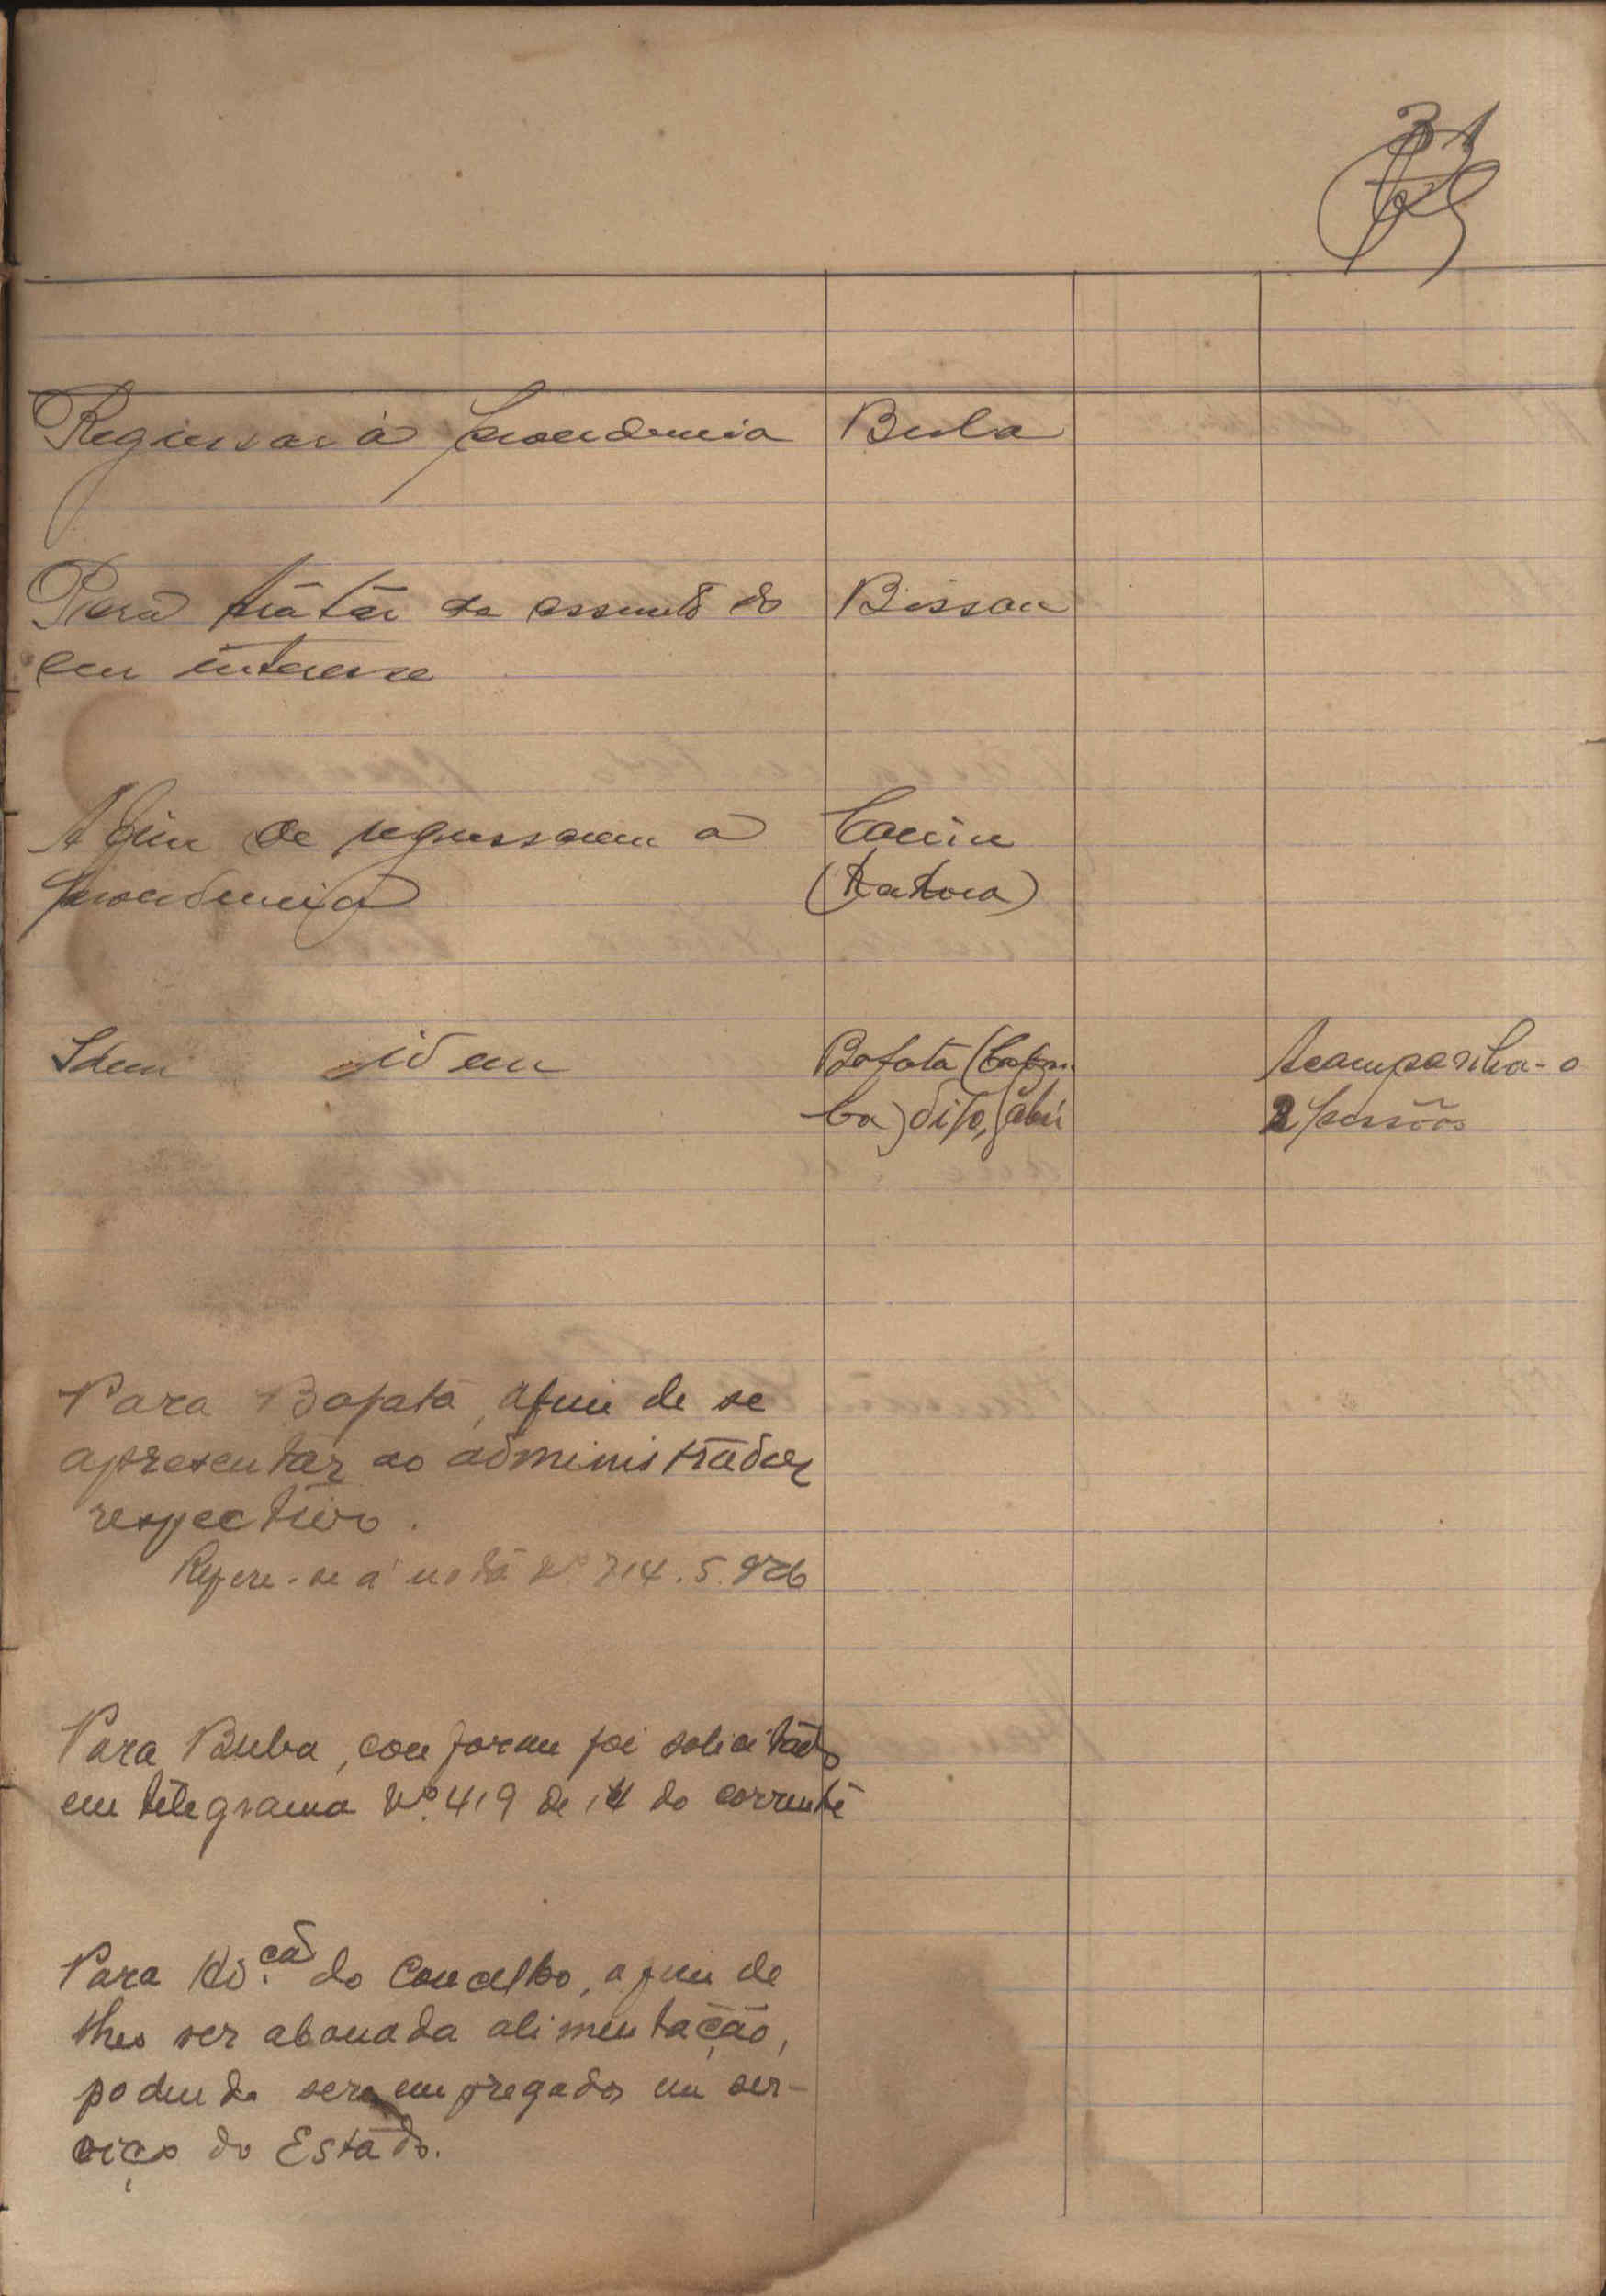 31
Regressar á procedencia Bula
Para tratar de assunto do Bissau
seu interesse
A fim de regressarem á Cacéu
procedencia
Idem idem Bafatá
Acompanha-o
2 pessôas
Para Bafatá, afim de se
apresentar ao administrador
respectivo.
Refere-se á nota Nº 714.5.926
Para Buba, conforme foi solicitado
em telegrama Nº 419 de 14 do corrente
Para Adº.ção do Concelho, a fim de
lhes ser abonada alimentação,
podendo ser empregados em ser-
viço do Estado.